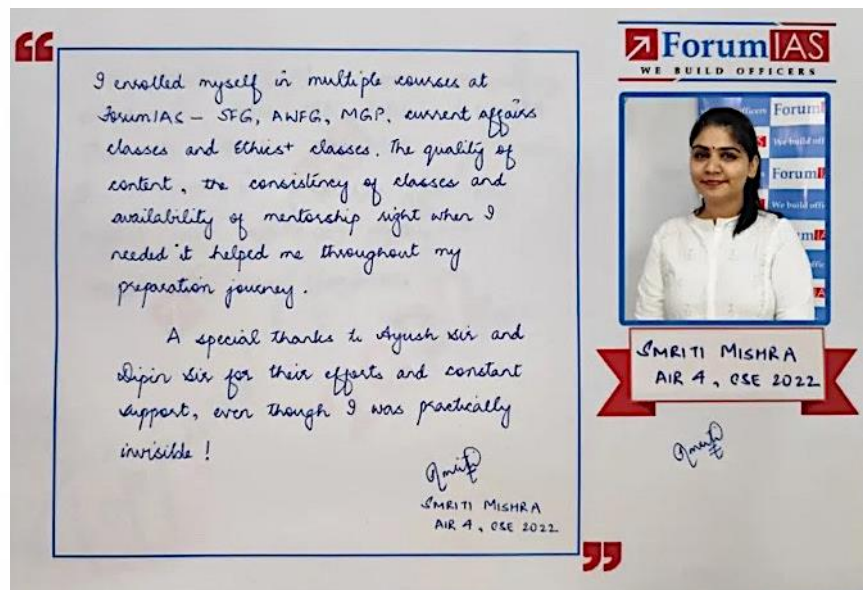 I enrolled myself in multiple courses at
ForumIAS - SFG, AWFG, MGP, current affairs
classes and Ethics+ classes. The quality of
content, the consistency of classes and
availability of mentorship right when I
needed it helped me throughout my
preparation journey.
A special thanks to Ayush sir and
Dipin sir for their efforts and constant
support, even though I was practically
invisible!
Smriti
SMRITI MISHRA
AIR 4, CSE 2022
ForumIAS
WE BUILD OFFICERS
Officers
Forum
We build off
Forum
We build offi
SMRITI MISHRA
AIR 4, CSE 2022
Smriti